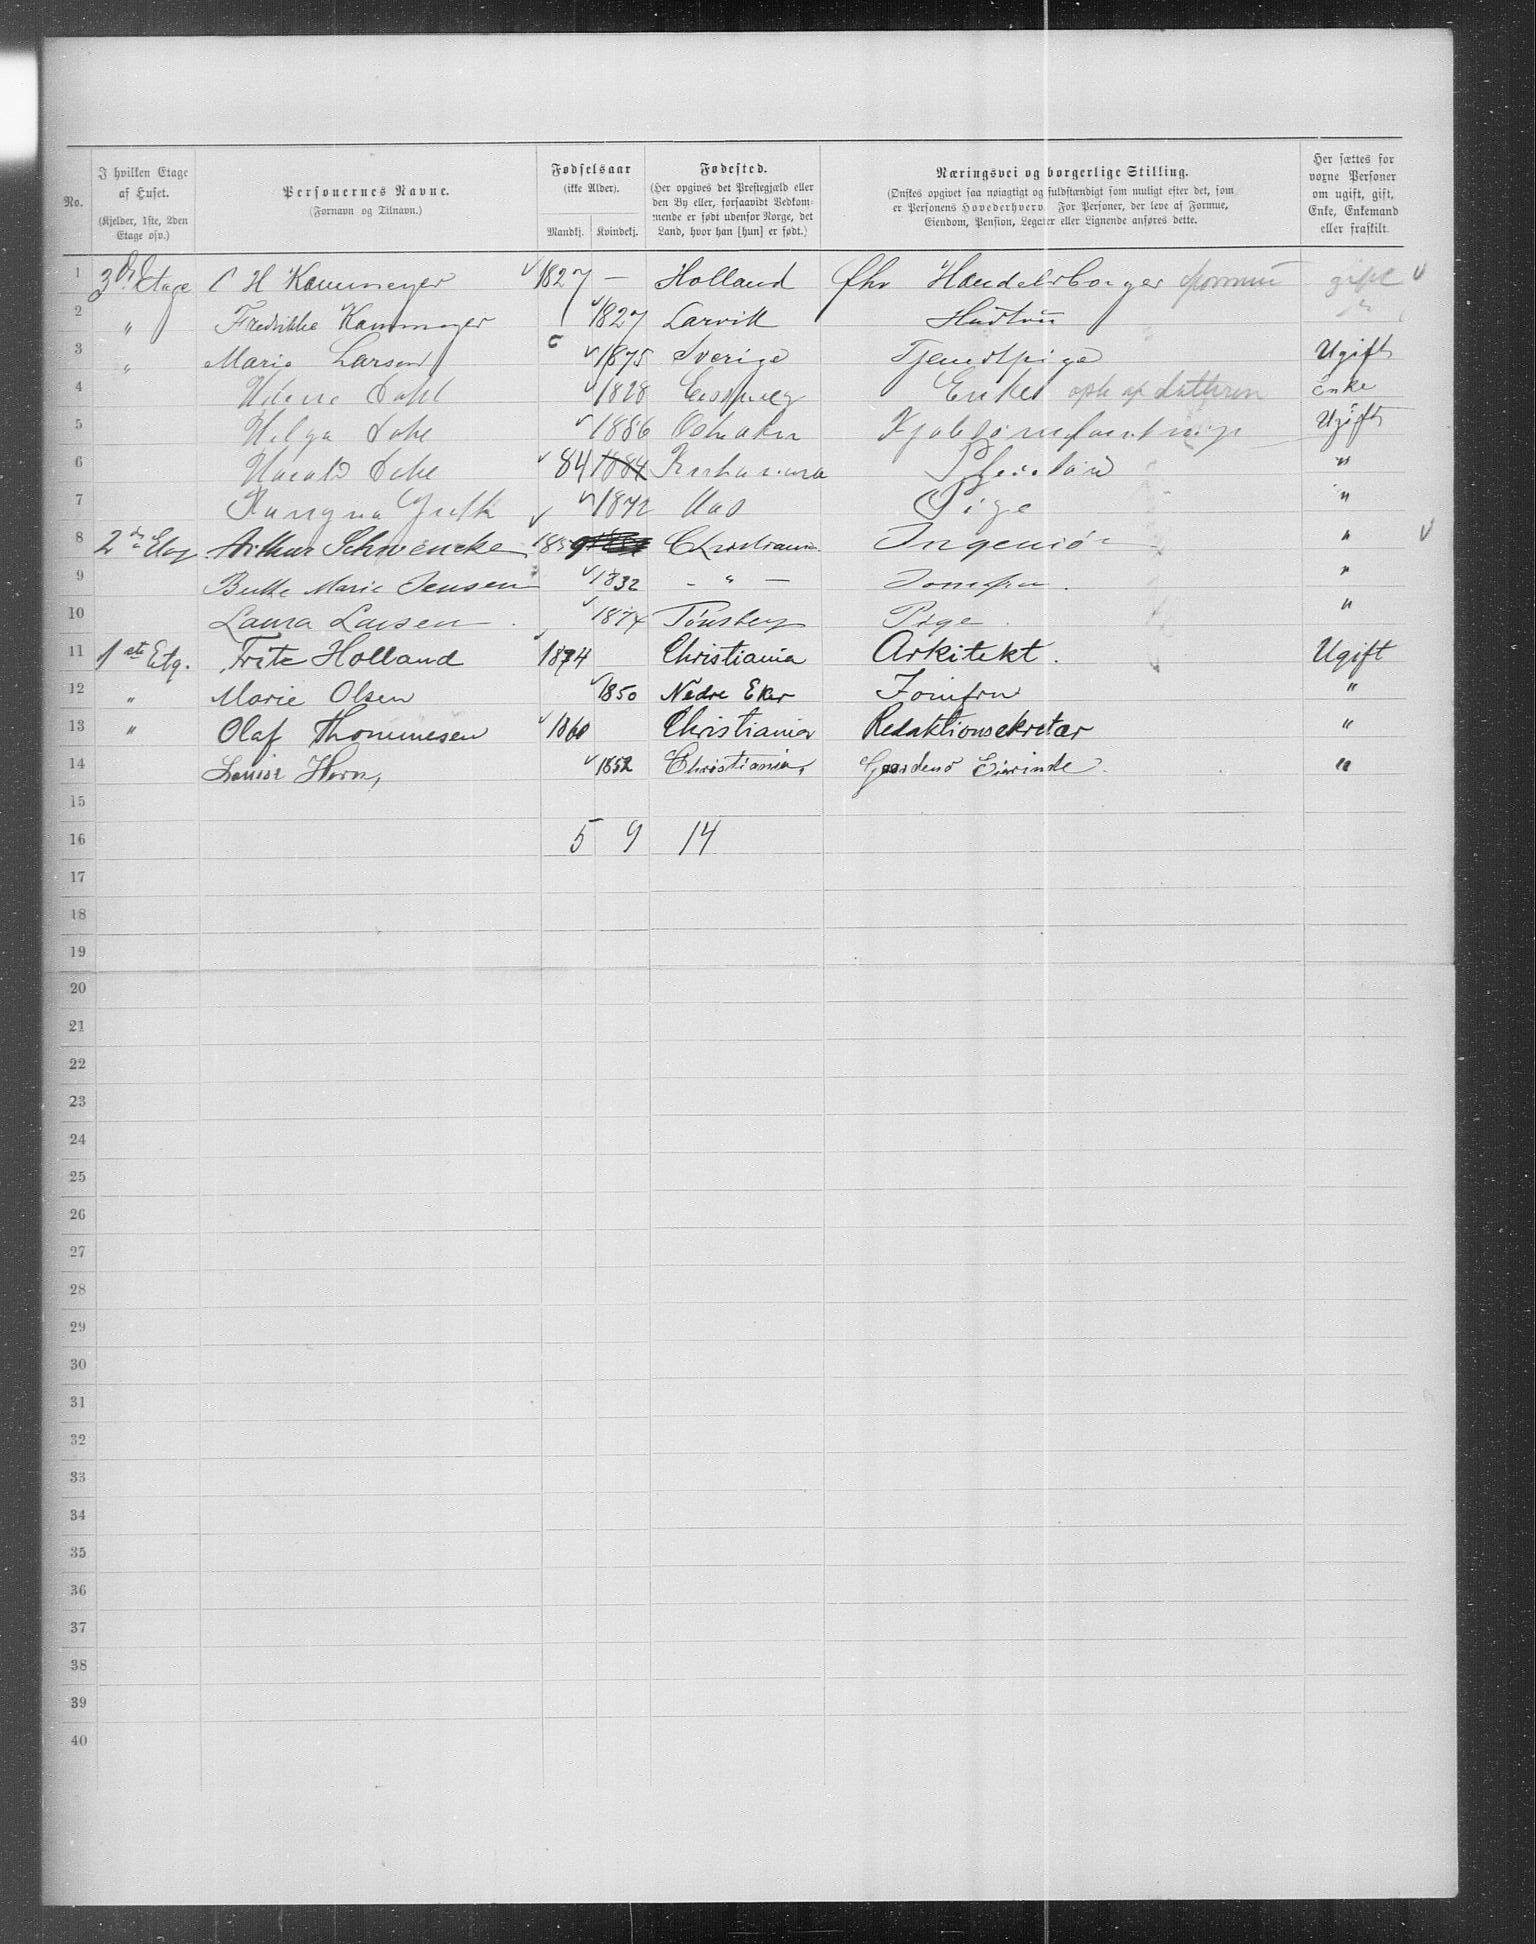 No.
I hvilken Etage af Huset. (Kjelder, 1ste, 2den Etage osv.)
Personernes Navne. (Fornavn og Tilnavn.)
Fødselsaar (ikke Alder). Mandkj. Kvindekj.
Fødested. (Her opgives det Prestegjæld eller den By eller, forsaavidt Vedkommende er født udenfor Norge, det Land, hvor han [hun] er født.)
Næringsvei og borgerlige Stilling. (Ønskes opgivet saa nøiagtigt og fuldstændigt som muligt efter det, som er Personens Hovederhverv. For Personer, der leve af Formue, Eiendom, Pension, Legater eller Lignende anføres dette.)
Her sættes for voxne Personer om ugift, gift, Enke, Enkemand eller fraskilt.
1 3die Etage C H Kammeyer 1827 — Holland fhv Handelsborger formue gift
2 " Fredrikke Kammeyer 1827 Larvik Hustru
3 " Marie Larsen 1875 Sverige Tjenestpige Ugift
4 Dahl 1828 Enke af Enke
5 Helga Dahl 1886 Ugift
6 Harald Dahl 84 1884 "
7 1872 Pige "
8 2den Etag Arthur Schwencke 1859 Christiania Ingeniør "
9 Marie Jensen 1832 - " - Jomfru "
10 Laura Larsen 1874 Tønsberg Pige "
11 1ste Etg. Fritz Holland 1874 Christiania Arkitekt. Ugift
12 " Marie Olsen 1850 Nedre Eker Jomfru "
13 " Olaf Thommesen 1860 Christiania Redaktionsekretær "
14 Louise Horn, 1852 Christiania, Gaardens Eierinde. "
15
16 5 9 14
17
18
19
20
21
22
23
24
25
26
27
28
29
30
31
32
33
34
35
36
37
38
39
40